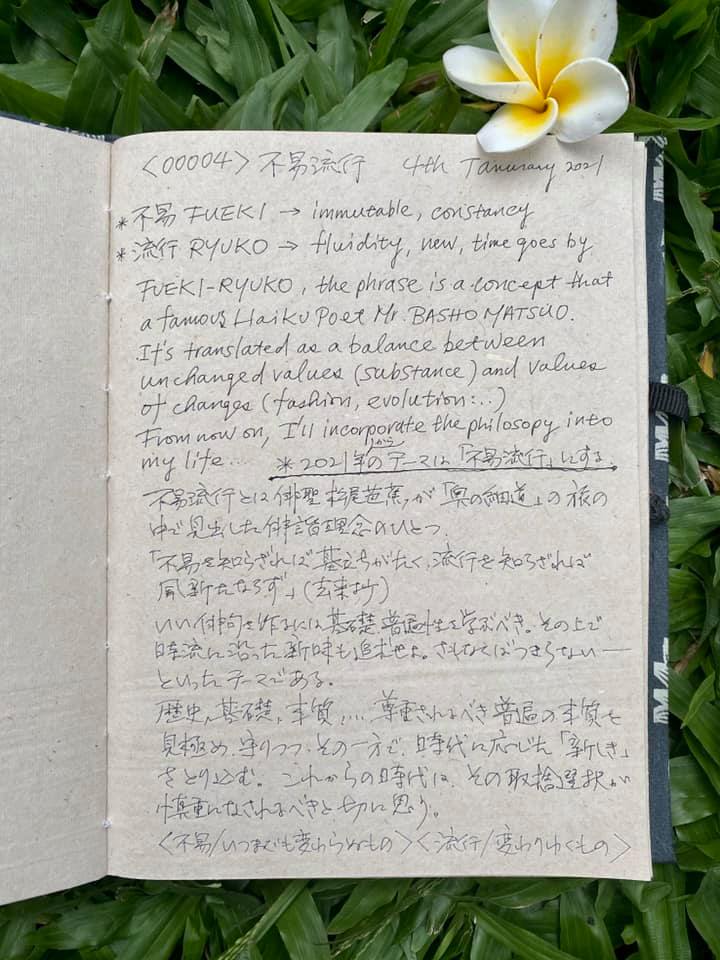 <00004> 不易流行 4th Tanurary 2021
* 不易 FUEKI → immutable, constancy
* 流行 RYUKO → fluidity, new, time goes by
FUEKI-RYUKO, the phrase is a concept that
a famous Haiku Poet Mr. BASHO MATSUO.
It's translated as a balance between
unchanged values (substance) and values
of changes (fashion, evolution...)
From now on, I'll incorporate the philosopy into
my life... * 2021年からのテーマは「不易流行」にする。
不易流行とは俳聖 松尾芭蕉が「奥の細道」の旅の
中で見出した俳諧理念のひとつ。
「不易を知らざれば基立ちがたく、流行を知らざれば
風新たならず」(去来抄)
いい俳句を作るには基礎 普遍性を学ぶべき。その上で
時流に沿った新味も追求せよ。さもなくばつまらない—
といったテーマである。
歴史、基礎、本質、... 尊重されるべき普遍の本質を
見極め、守りつつ、その一方で、時代に応じた「新しき」
をとり込む。これからの時代は、その取捨選択が
慎重になされるべきと切に思う。
<不易/いつまでも変わらぬもの> <流行/変わりゆくもの>